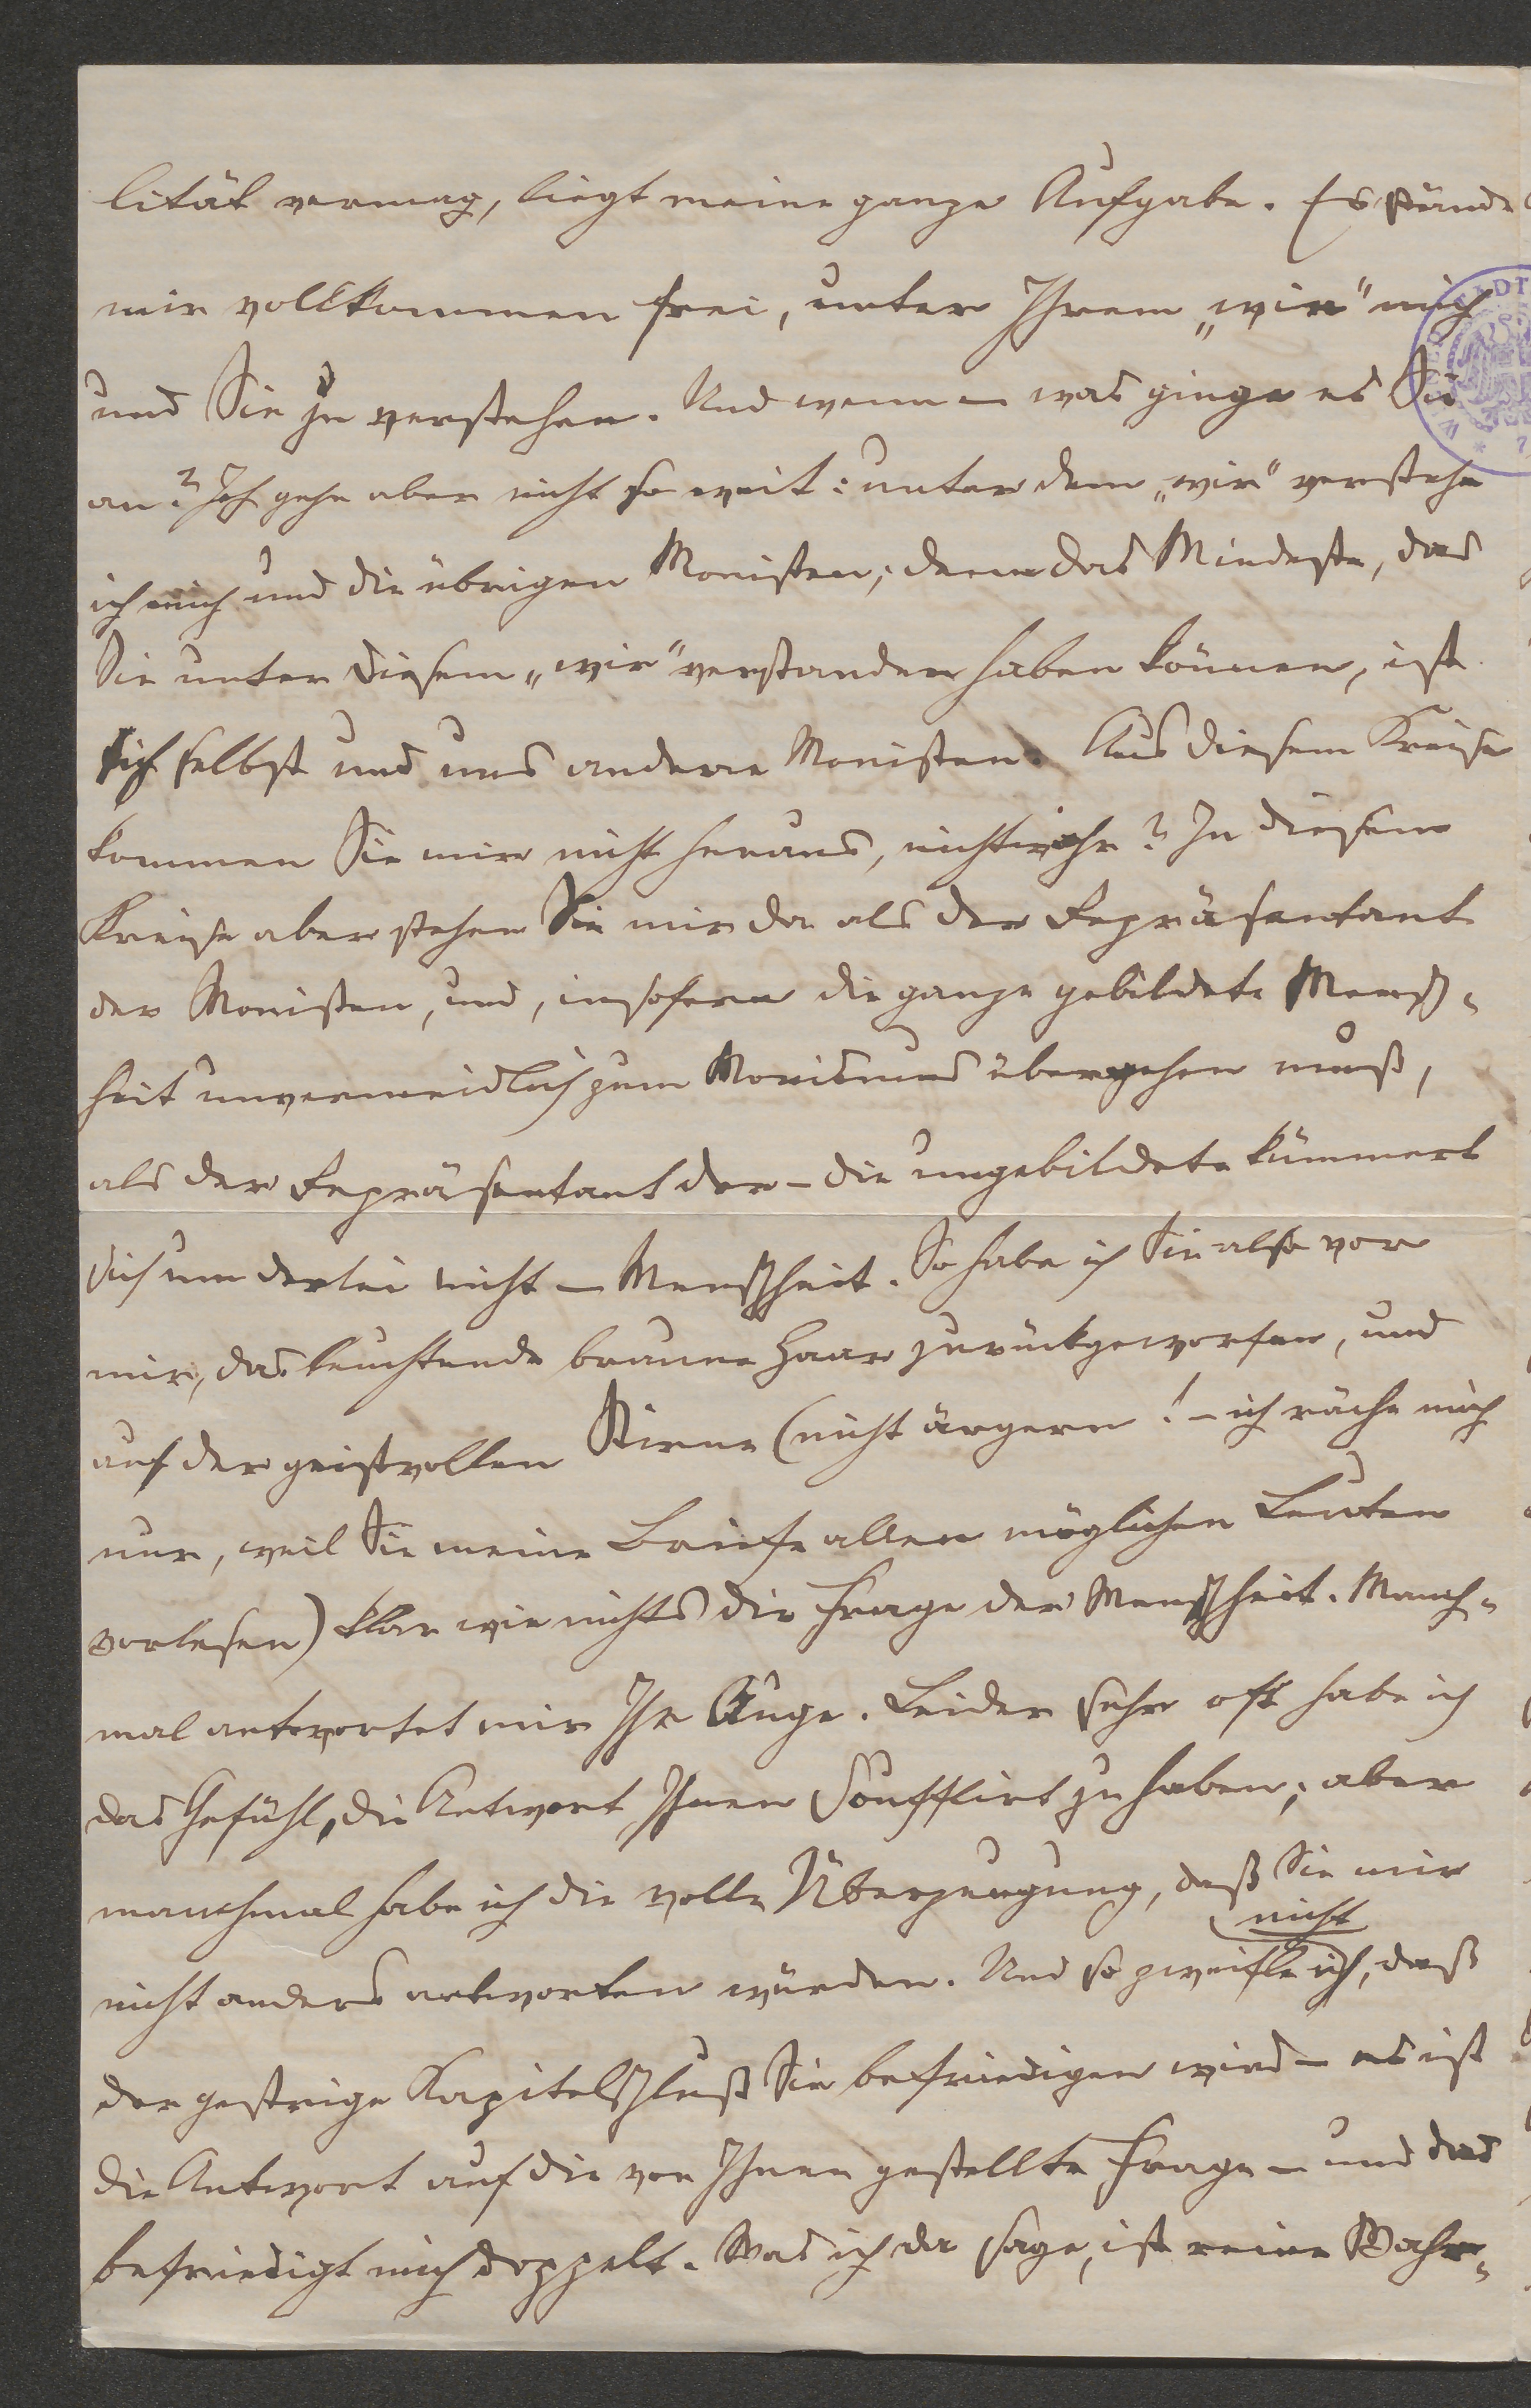 lität vermag, liegt meine ganze Aufgabe. Es stände
mir vollkommen frei, unter Ihrem „wir“ mich
und Sie zu verstehen. Und wenn – was ginge es Sie
an? Ich gehe aber nicht so weit: unter dem „wir“ verstehe
ich mich und die übrigen Monisten; denn das Mindeste, das
Sie unter diesem „wir“ verstanden haben können, ist
sich selbst und uns andere Monisten. Aus diesem Kreise
kommen Sie mir nicht heraus, nichtwahr? In diesem
Kreise aber stehen Sie mir da als der Repräsentant
der Monisten, und, insofern die ganze gebildete Mensch-
heit unvermeidlich zum Monismus übergehen muß,
als der Repräsentant der – die ungebildete kümmert
sich um derlei nicht – Menschheit. So habe ich Sie also vor
mir, das leuchtende braune Haar zurückgeworfen, und
auf der geistvollen Stirne (nicht ärgern! – ich räche mich
nur, weil Sie meine Briefe allen möglichen Leuten
vorlesen) klar wie nichts die Frage der Menschheit. Manch-
mal antwortet mir Ihr Auge. Leider sehr oft habe ich
das Gefühl, die Antwort Ihnen soufflirt zu haben; aber
manchmal habe ich die volle Überzeugung, daß Sie mir
nicht
nicht anders antworten würden. Und so zweifle ich, daß
der gestrige Kapitelschluß Sie befriedigen wird – es ist
die Antwort auf die von Ihnen gestellte Frage – und das
befriedigt mich doppelt. Was ich da sage, ist reine Wahr-